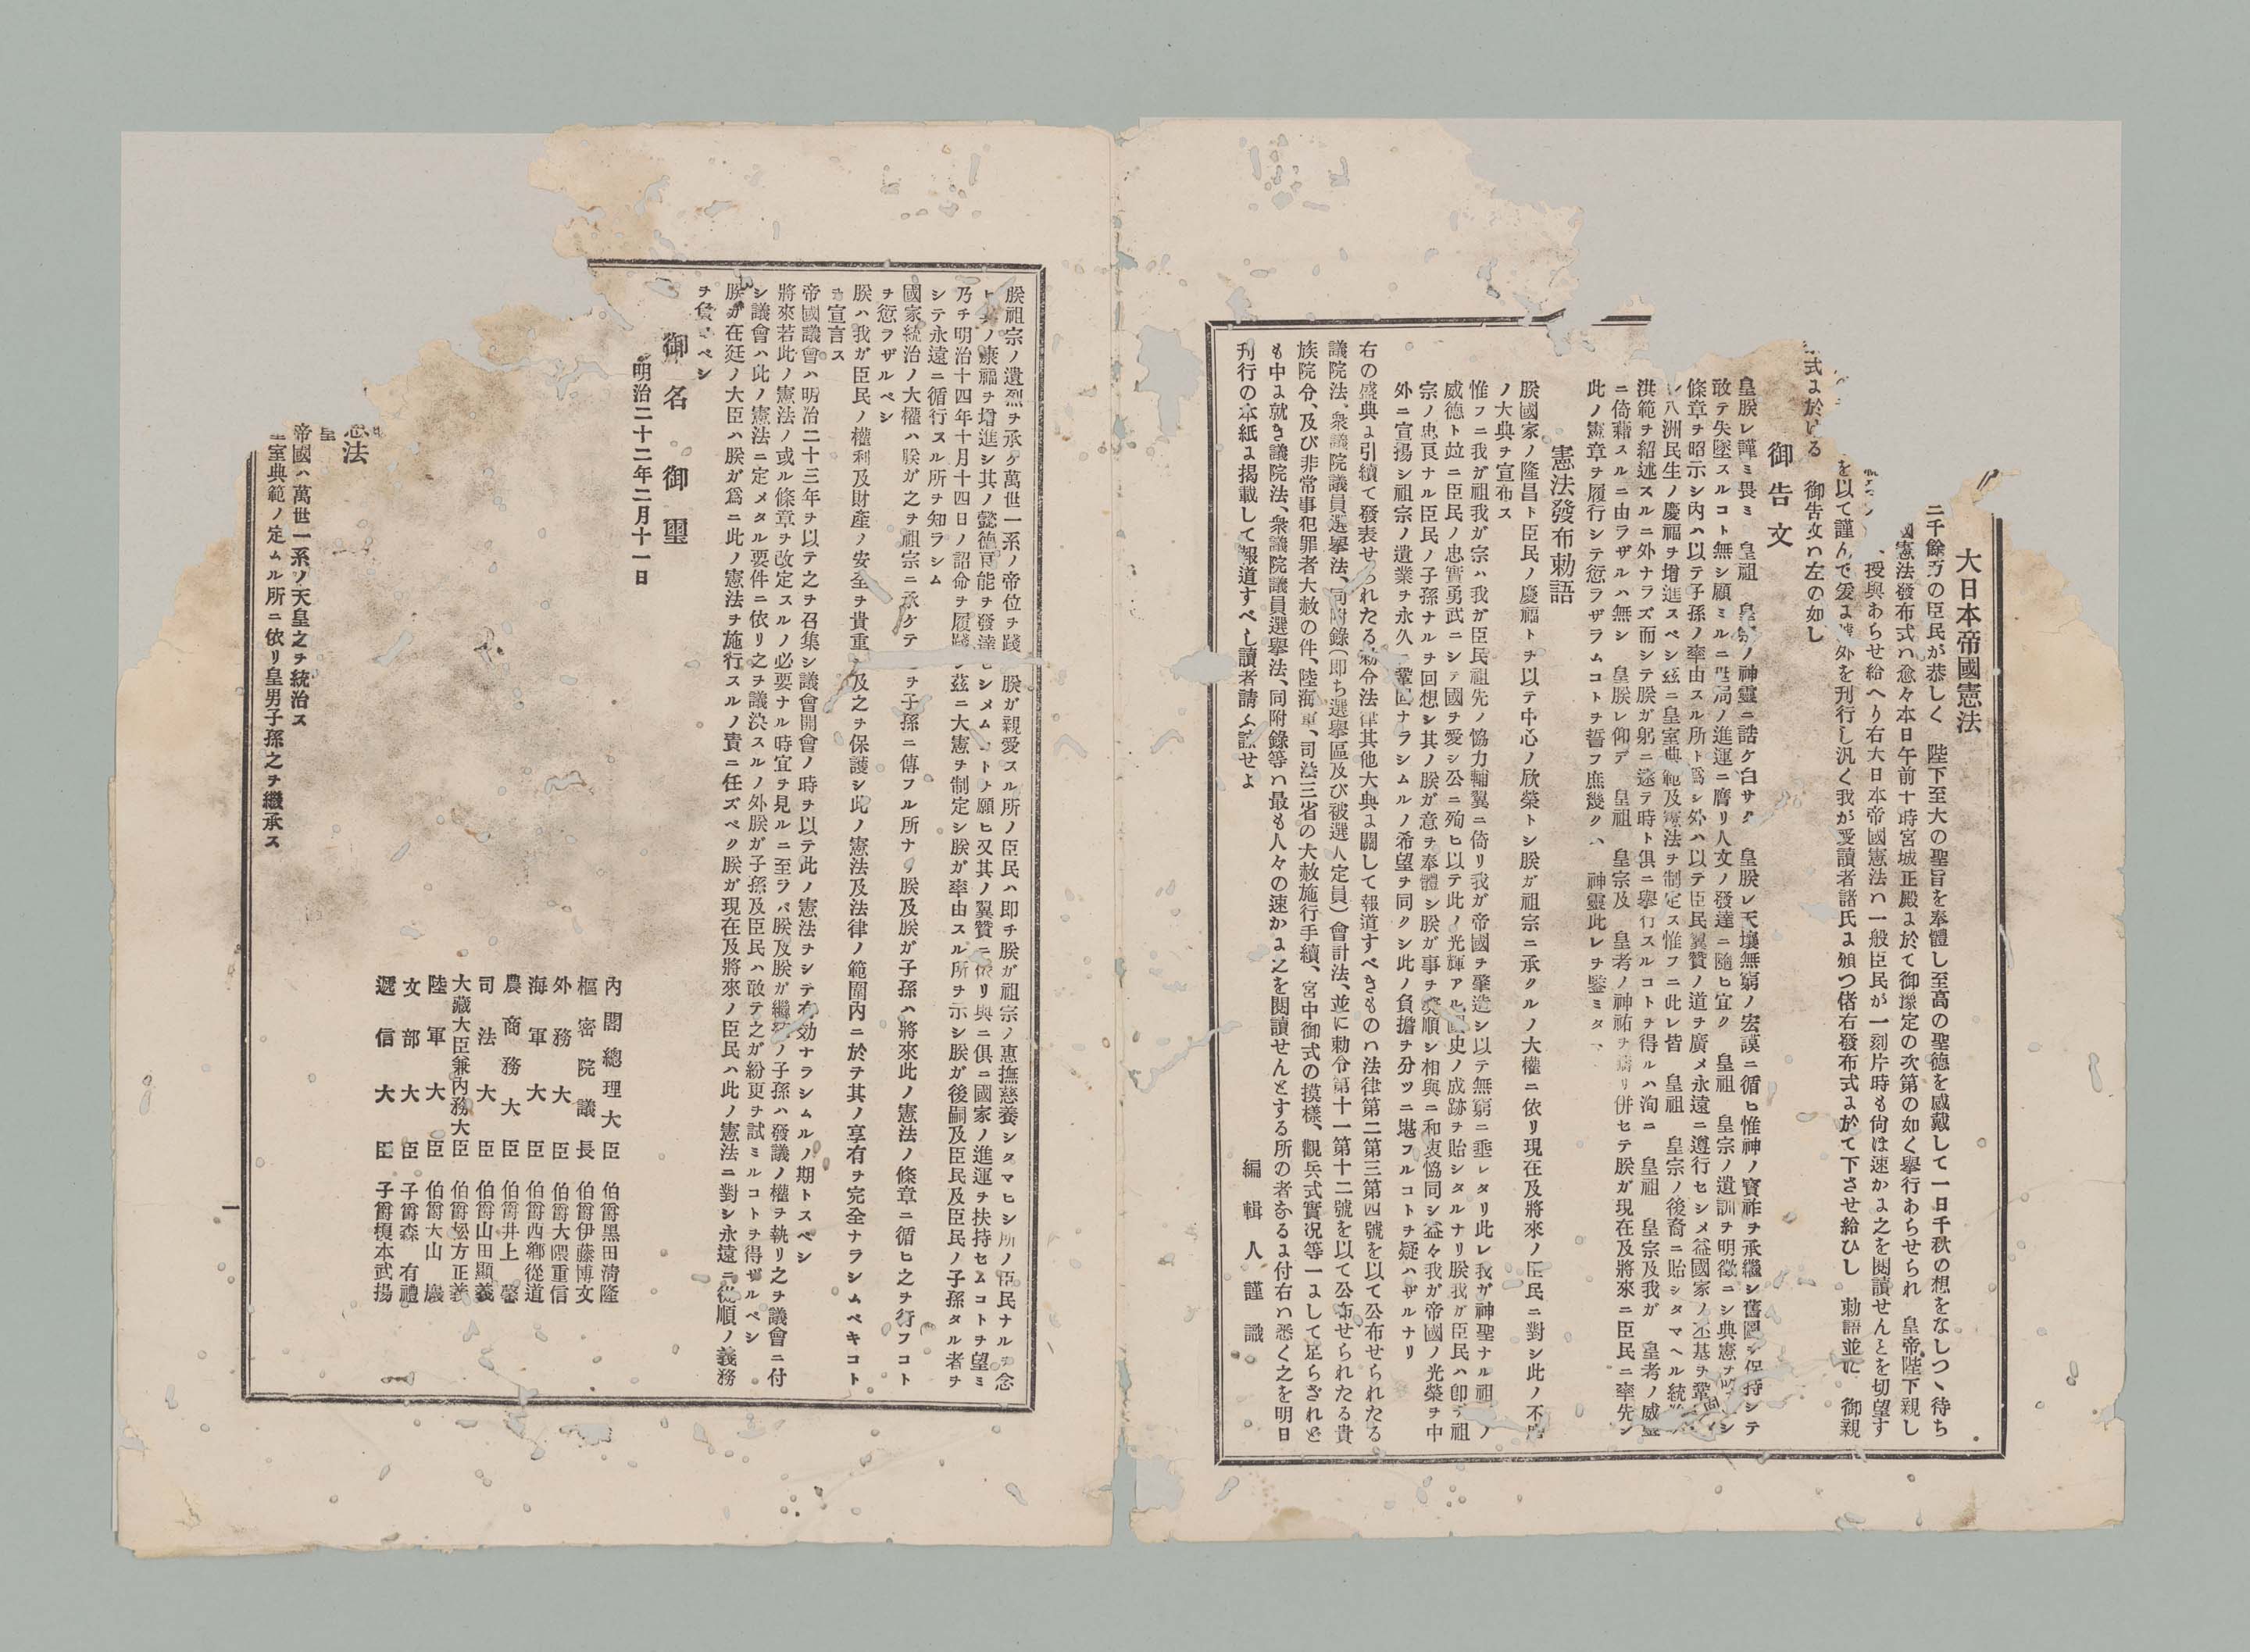 大日本帝國憲法
二千餘万の臣民が恭しく　陛下至大の聖旨を奉體し至高の聖德を感戴して一日千秋の想をなしつヽ待ち
國憲法發布式ハ愈々本日午前十時宮城正殿ょ於て御豫定の次第の如く擧行あらせられ　皇帝陛下親し
授與あらせ給へり右大日本帝國憲法ハ一般臣民が一刻片時も尙ほ速かょ之を閱讀せんとを切望す
を以て謹んで爰ょ號外を刊行し汎く我が愛讀者諸氏ょ頒つ偖右發布式ょ於て下させ給ひし　勅語並に　御親
式ょ於ける　御告文ハ左の如し
御告文
皇朕レ謹ミ畏ミ　皇祖　皇宗ノ神靈ニ誥ケ白サク　皇朕レ天壤無窮ノ宏謨ニ循ヒ惟神ノ寶祚ヲ承繼シ舊圖ヲ保持シテ
敢テ失墜スルコト無シ顧ミルニ世局ノ進運ニ膺リ人文ノ發達ニ隨ヒ宜ク　皇祖　皇宗ノ遺訓ヲ明徵ニシ典憲ヲ
條章ヲ昭示シ內ハ以テ子孫ノ率由スル所ト爲シ外ハ以テ臣民翼贊ノ道ヲ廣メ永遠ニ遵行セシメ益國家ノ丕基ヲ
八洲民生ノ慶福ヲ增進スベシ玆ニ皇室典範及憲法ヲ制定ス惟フニ此レ皆　皇祖　皇宗ノ後裔ニ貽シタマヘル統
洪範ヲ紹述スルニ外ナラズ而シテ朕ガ躬ニ逮テ時ト俱ニ擧行スルコトヲ得ルハ洵ニ　皇祖　皇宗及我ガ　皇考ノ威
ニ倚藉スルニ由ラザルハ無シ　皇朕レ仰デ　皇祖　皇宗及　皇考ノ神祐ヲ禱リ併セテ朕ガ現在及將來ニ臣民ニ率先シ
此ノ憲章ヲ履行シテ愆ラザラムコトヲ誓フ庶幾クハ　神靈此レヲ鑒ミタ
憲法發布勅語
朕國家ノ隆昌ト臣民ノ慶福トヲ以テ中心ノ欣榮トシ朕ガ祖宗ニ承クルノ大權ニ依リ現在及將來ノ臣民ニ對シ此ノ不磨
ノ大典ヲ宣布ス
惟フニ我ガ祖我ガ宗ハ我ガ臣民祖先ノ協力輔翼ニ倚リ我ガ帝國ヲ肇造シ以テ無窮ニ垂レタリ此レ我ガ神聖ナル祖宗ノ
威德ト竝ニ臣民ノ忠實勇武ニシテ國ヲ愛シ公ニ殉ヒ以テ此ノ光輝アル國史ノ成跡ヲ貽シタルナリ朕我ガ臣民ハ卽チ祖
宗ノ忠良ナル臣民ノ子孫ナルヲ回想シ其ノ朕ガ意ヲ奉體シ朕ガ事ヲ奬順シ相與ニ和衷協同シ益々我ガ帝國ノ光榮ヲ中
外ニ宣揚シ祖宗ノ遺業ヲ永久ニ鞏固ナラシムルノ希望ヲ同クシ此ノ負擔ヲ分ツニ堪フルコトヲ疑ハザルナリ
右の盛典ょ引續て發表せられたる勅令法律其他大典ょ關して報道すべきものハ法律第二第三第四號を以て公布せられたる
議院法、衆議院議員選擧法、同附錄（卽ち選擧區及び被選人定員）會計法、並に勅令第十一第十二號を以て公布せられたる貴
族院令、及び非常事犯罪者大赦の件、陸海軍、司法三省の大赦施行手續、宮中御式の摸樣、觀兵式實況等一ょして足らざれど
も中ょ就き議院法、衆議院議員選擧法、同附錄等ハ最も人々の速かょ之を閱讀せんとする所の者なるょ付右ハ悉く之を明日
刋行の本紙ょ揭載して報道すべし讀者請ふ諒せよ
編輯人謹識
朕祖宗ノ遺烈ヲ承ケ萬世一系ノ帝位ヲ踐　朕ガ親愛スル所ノ臣民ハ卽チ朕ガ祖宗ノ惠撫慈養シタマヒシ所ノ臣民ナルヲ念
ヒ其ノ康福ヲ增進シ其ノ懿德良能ヲ發達セシメムコトヲ願ヒ又其ノ翼贊ニ依リ與ニ俱ニ國家ノ進運ヲ扶持セムコトヲ望ミ
乃チ明治十四年十月十四日ノ詔命ヲ履踐シ玆ニ大憲ヲ制定シ朕ガ率由スル所ヲ示シ朕ガ後嗣及臣民及臣民ノ子孫タル者ヲ
シテ永遠ニ循行スル所ヲ知ラシム
國家統治ノ大權ハ朕ガ之ヲ祖宗ニ承ケテ　ヲ子孫ニ傳フル所ナリ朕及朕ガ子孫ハ將來此ノ憲法ノ條章ニ循ヒ之ヲ行フコト
ヲ愆ラザルベシ
朕ハ我ガ臣民ノ權利及財產ノ安全ヲ貴重　及之ヲ保護シ此ノ憲法及法律ノ範圍內ニ於テ其ノ享有ヲ完全ナラシムベキコト
ヲ宣言ス
帝國議會ハ明治二十三年ヲ以テ之ヲ召集シ議會開會ノ時ヲ以テ此ノ憲法ヲシテ有効ナラシムルノ期トスベシ
將來若此ノ憲法ノ或ル條章ヲ改定スルノ必要ナル時宜ヲ見ルニ至ラバ朕及朕ガ繼統ノ子孫ハ發議ノ權ヲ執リ之ヲ議會ニ付
シ議會ハ此ノ憲法ニ定メタル要件ニ依リ之ヲ議決スルノ外朕ガ子孫及臣民ハ敢テ之ガ紛更ヲ試ミルコトヲ得ザルベシ
朕ガ在廷ノ大臣ハ朕ガ爲ニ此ノ憲法ヲ施行スルノ責ニ任ズベク朕ガ現在及將來ノ臣民ハ此ノ憲法ニ對シ永遠ニ從順ノ義務
ヲ負フベシ
御名御璽
明治二十二年二月十一日
內閣總理大臣　伯爵黑田淸隆
樞密院議長　伯爵伊藤博文
外務大臣　伯爵大隈重信
海軍大臣　伯爵西鄕從道
農商務大臣　伯爵井上馨
司法大臣　伯爵山田顯義
大藏大臣兼內務大臣　伯爵松方正義
陸軍大臣　伯爵大山巖
文部大臣　子爵森有禮
遞信大臣　子爵榎本武揚
憲法
皇
帝國ハ萬世一系ノ天皇之ヲ統治ス
室典範ノ定ムル所ニ依リ皇男子孫之ヲ繼承ス
一